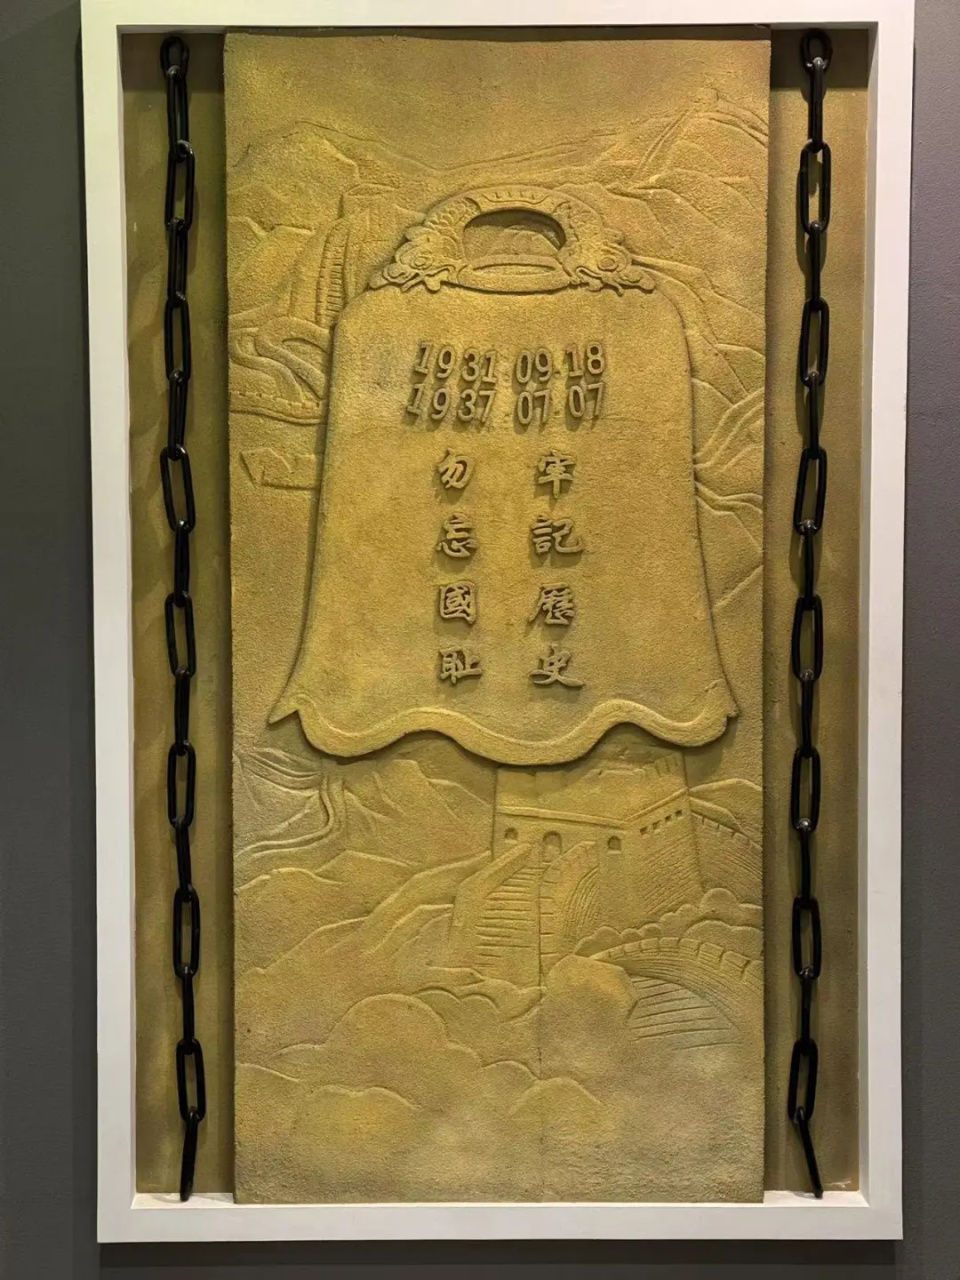 1931 09.18
1937 07.07
牢記歷史
勿忘國耻